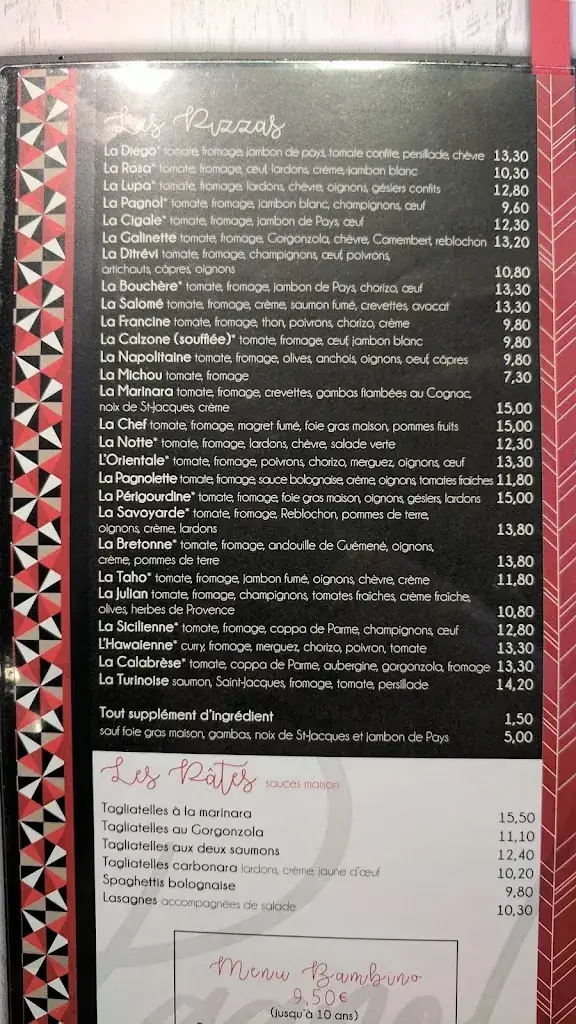 Les Pizzas
La Diego* tomate, fromage, jambon de pays, tomate confite, persillade, chèvre 13,30
La Rosa* tomate, fromage, œuf, lardons, crème, jambon blanc 10,30
La Lupa* tomate, fromage, lardons, chèvre, oignons, gésiers confits 12,80
La Pagnol* tomate, fromage, jambon blanc, champignons, œuf 9,60
La Cigale* tomate, fromage, jambon de Pays, œuf 12,30
La Galinette tomate, fromage, Gorgonzola, chèvre, Camembert, reblochon 13,20
La Ditrévi tomate, fromage, champignons, œuf, poivrons,
artichauts, câpres, oignons 10,80
La Bouchère* tomate, fromage, jambon de Pays, chorizo, œuf 13,30
La Salomé tomate, fromage, crème, saumon fumé, crevettes, avocat 13,30
La Francine tomate, fromage, thon, poivrons, chorizo, crème 9,80
La Calzone (soufflée)* tomate, fromage, œuf, jambon blanc 9,80
La Napolitaine tomate, fromage, olives, anchois, oignons, oeuf, câpres 9,80
La Michou tomate, fromage 7,30
La Marinara tomate, fromage, crevettes, gambas flambées au Cognac,
noix de St-Jacques, crème 15,00
La Chef tomate, fromage, magret fumé, foie gras maison, pommes fruits 15,00
La Notte* tomate, fromage, lardons, chèvre, salade verte 12,30
L'Orientale* tomate, fromage, poivrons, chorizo, merguez, oignons, œuf 13,30
La Pagnolette tomate, fromage, sauce bolognaise, crème, oignons, tomates fraîches 11,80
La Périgourdine* tomate, fromage, foie gras maison, oignons, gésiers, lardons 15,00
La Savoyarde* tomate, fromage, Reblochon, pommes de terre,
oignons, crème, lardons 13,80
La Bretonne* tomate, fromage, andouille de Guémené, oignons,
crème, pommes de terre 13,80
La Taho* tomate, fromage, jambon fumé, oignons, chèvre, crème 11,80
La Julian tomate, fromage, champignons, tomates fraîches, crème fraîche,
olives, herbes de Provence 10,80
La Sicilienne* tomate, fromage, coppa de Parme, champignons, œuf 12,80
L'Hawaïenne* curry, fromage, merguez, chorizo, poivron, tomate 13,30
La Calabrèse* tomate, coppa de Parme, aubergine, gorgonzola, fromage 13,30
La Turinoise saumon, Saint-Jacques, fromage, tomate, persillade 14,20
Tout supplément d'ingrédient 1,50
sauf foie gras maison, gambas, noix de St-Jacques et jambon de Pays 5,00
Les Pâtes sauces maison
Tagliatelles à la marinara 15,50
Tagliatelles au Gorgonzola 11,10
Tagliatelles aux deux saumons 12,40
Tagliatelles carbonara lardons, crème, jaune d'œuf 10,20
Spaghettis bolognaise 9,80
Lasagnes accompagnées de salade 10,30
Menu Bambino
9,50€
(jusqu'à 10 ans)